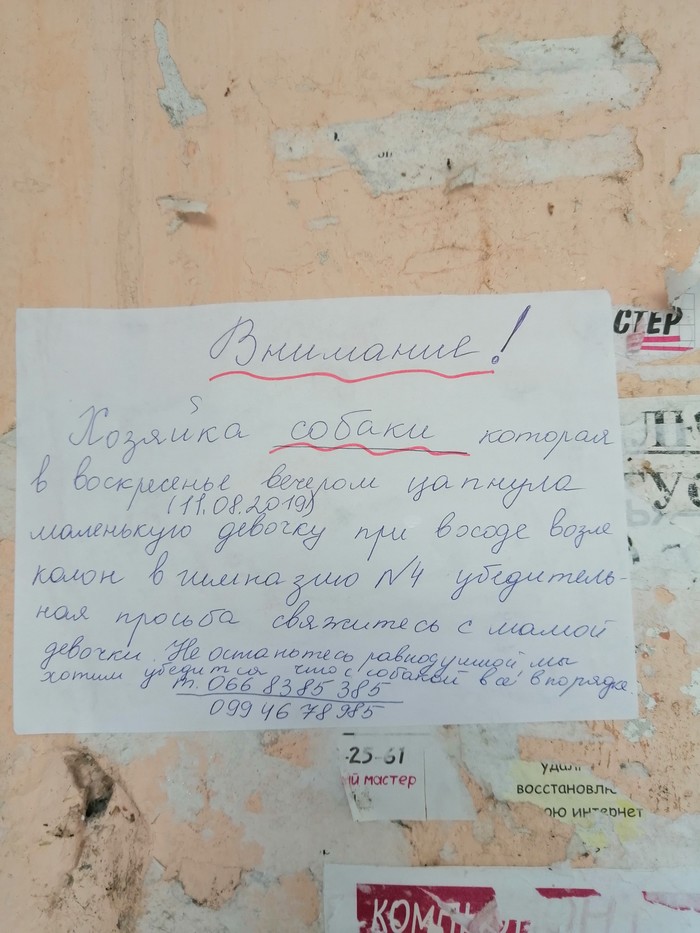 Внимание!
Хозяйка собаки которая
в воскресенье вечером цапнула
(11.08.2019)
маленькую девочку при входе возле
колон в гимназию №4 убедитель-
ная просьба свяжитесь с мамой
девочки. Не останьтесь равнодушной, мы
хотим убедится что с собакой всё в порядке.
т. 066 8385 385
099 46 78 985
СТЕР
-25-61
ый мастер
восстановл
ою интернет
КОМП